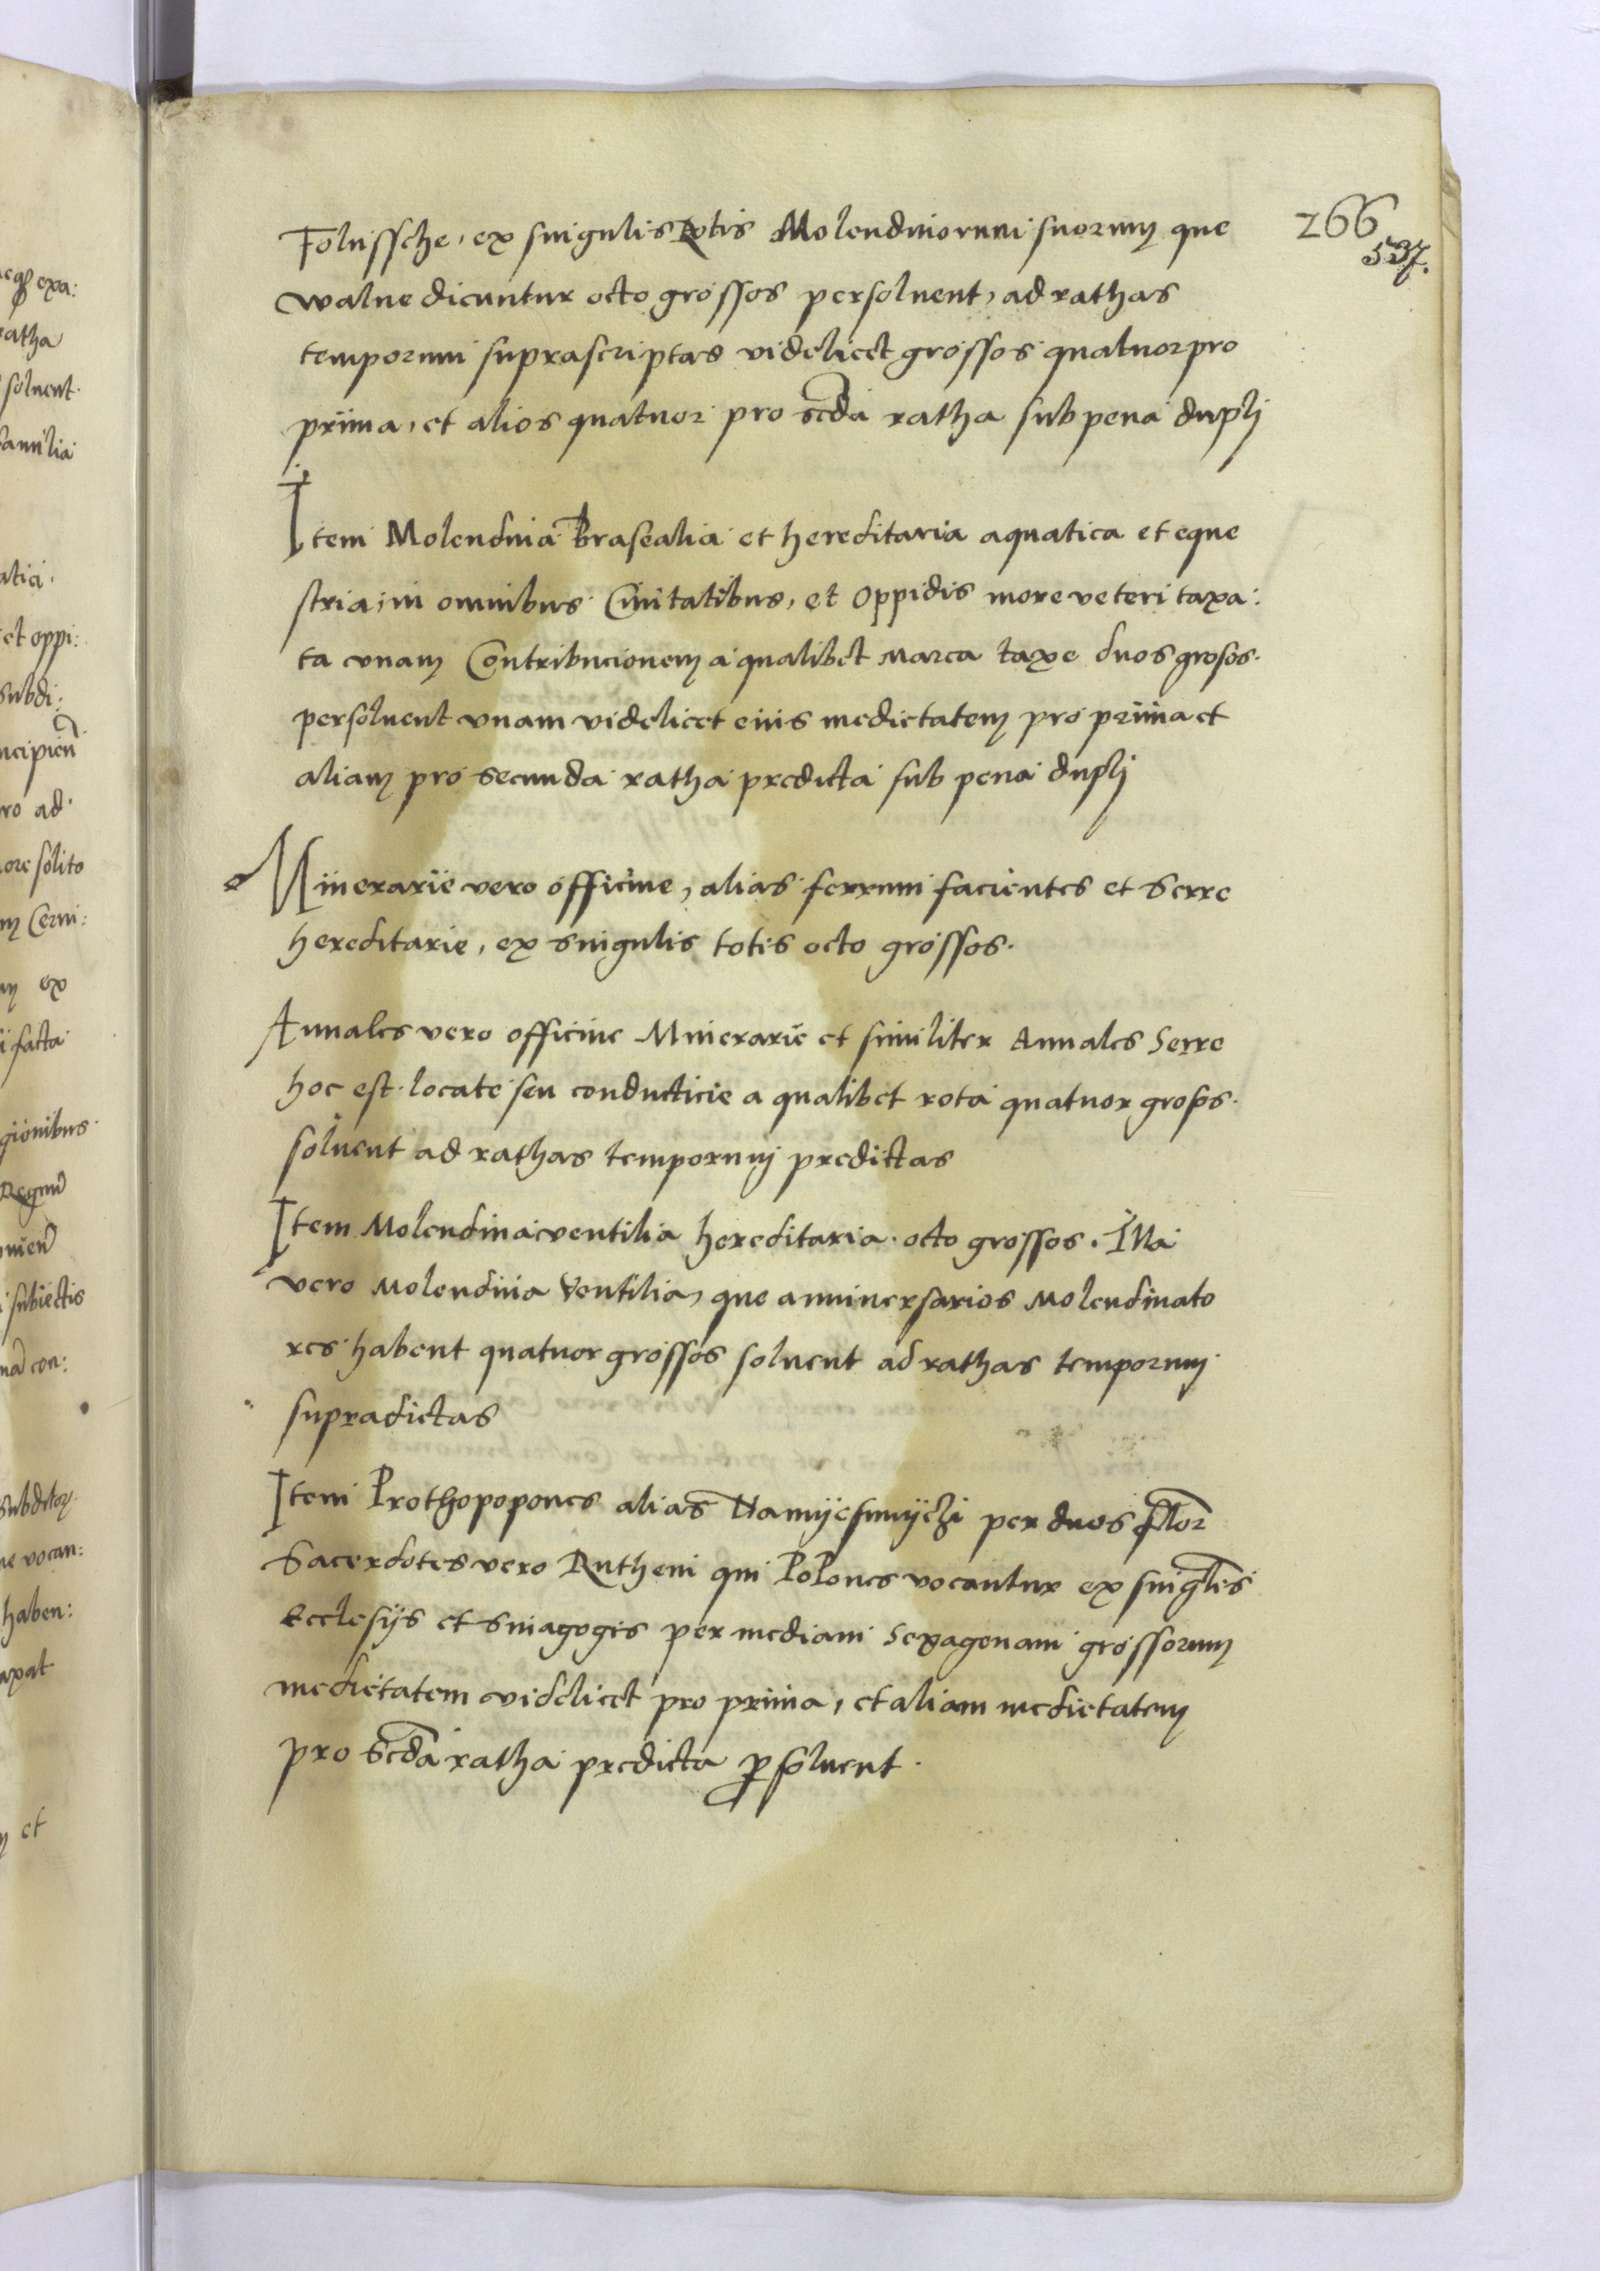 266
537.
Folussche, ex singulis Rotis Molendinorum suorum que
walne dicuntur octo grossos persolvent, ad rathas
temporum suprascriptas videlicet grossos quatuor pro
prima, et alios quatuor pro scda ratha sub pena dupli
Item Molendina Brasealia et hereditaria aquatica et eque
stria, in omnibus Civitatibus, et Oppidis more veteri taxa:
ta unam Contribucionem a qualibet Marca taxe duos grosos.
persolvent unam videlicet eius medietatem pro prima et
aliam pro secunda ratha predicta sub pena dupli
Minerarie vero officine, alias ferrum facientes et Serre
hereditarie, ex singulis totis octo grossos.
Annales vero officine Minerarie et similiter Annales Serre
hoc est locate seu conducticie a qualibet rota quatuor gross.
solvent ad rathas temporum predictas
Item Molendina ventilia hereditaria octo grossos. Illa
vero Molendina Ventilia, que anniversarios Molendinato
res habent quatuor grossos solvent ad rathas temporum
supradictas
Item Prothopopones alias Namyesnyczi per duos flor
Sacerdotes vero Rutheni qui PoPones vocantur ex singlis
Ecclesiis et Sinagogis per mediam Sexagenam grossorum
medietatem videlicet pro prima, et aliam medietatem
pro Scda ratha predicta psolvent.
exa:
ratha
solvent.
familia
et oppi:
Subdi:
ncipien
ro ad
ore solito
Cervi:
ex
facta
gionibus
Regni
subiectis
con:
Subditor
ne vocan:
haben:
axat
et